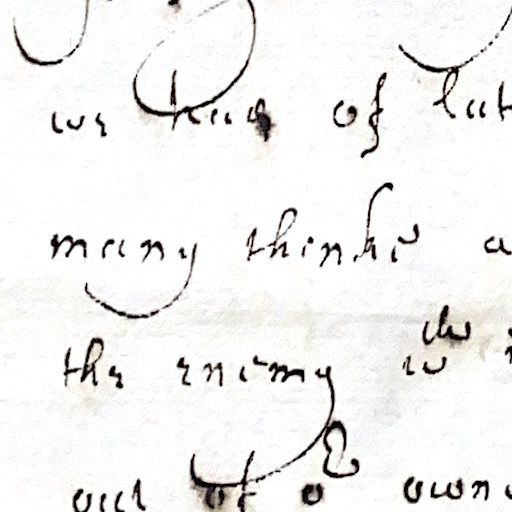 we haue of lat
many thinke a
the enemy w^ch
out of o^r owne